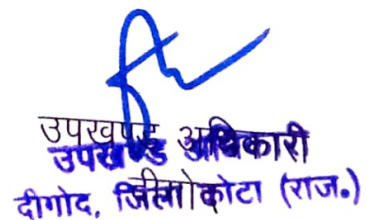 उपखण्ड अधिकारी
उपखण्ड अधिकारी
दीगोद, जिला कोटा (राज०)